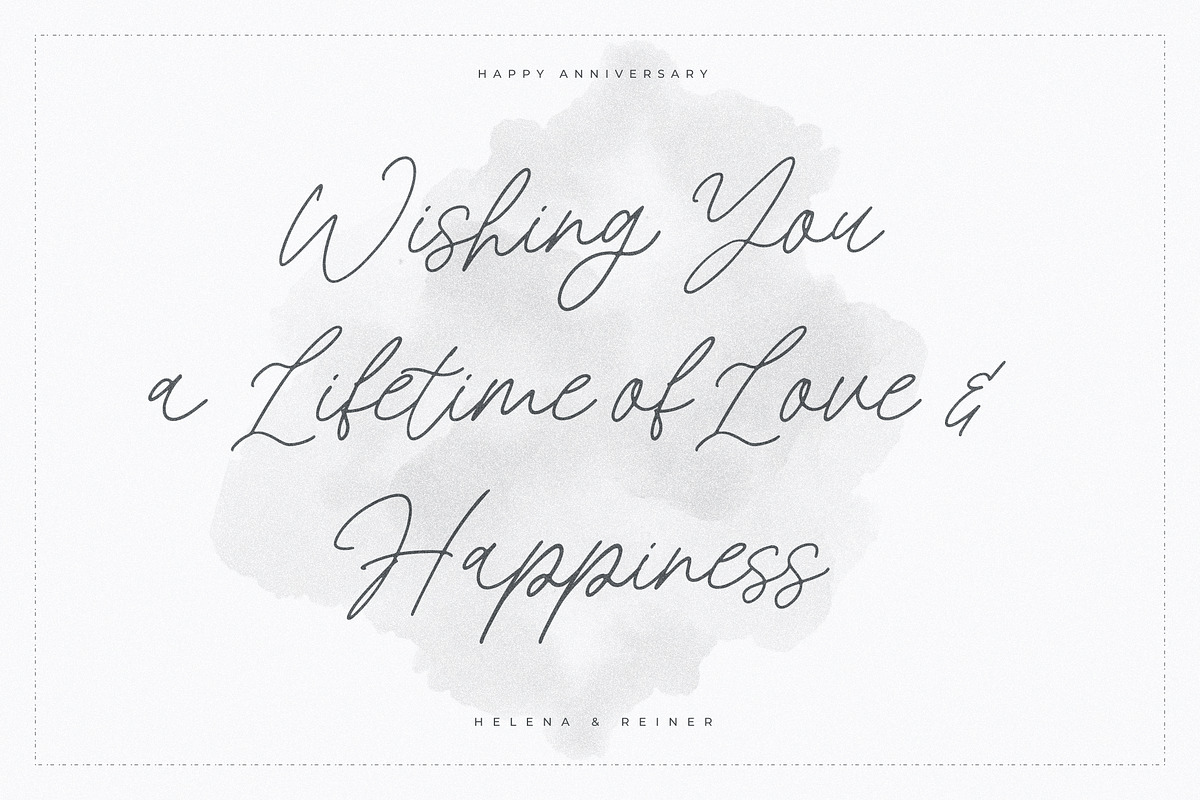 HAPPY ANNIVERSARY
Wishing You
a Lifetime of Love &
Happiness
HELENA & REINER